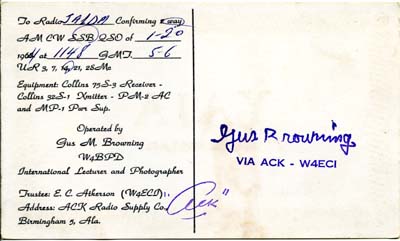 To Radio JA1DM Confirming 2 way
AM CW SSB QSO of 1-20
1964 at 1148 GMT. 5-6
UR 3, 7, 14, 21, 28Mc
Equipment: Collins 75S-3 Receiver -
Collins 32S-1 Xmitter - PM-2 AC
and MP-1 Pwr Sup.
Operated by
Gus M. Browning
W4BPD
International Lecturer and Photographer
Trustee: E. C. Atkerson (W4ECI)
Address: ACK Radio Supply Co.
Birmingham 5, Ala.
"Ack"
Gus Browning
VIA ACK - W4ECI